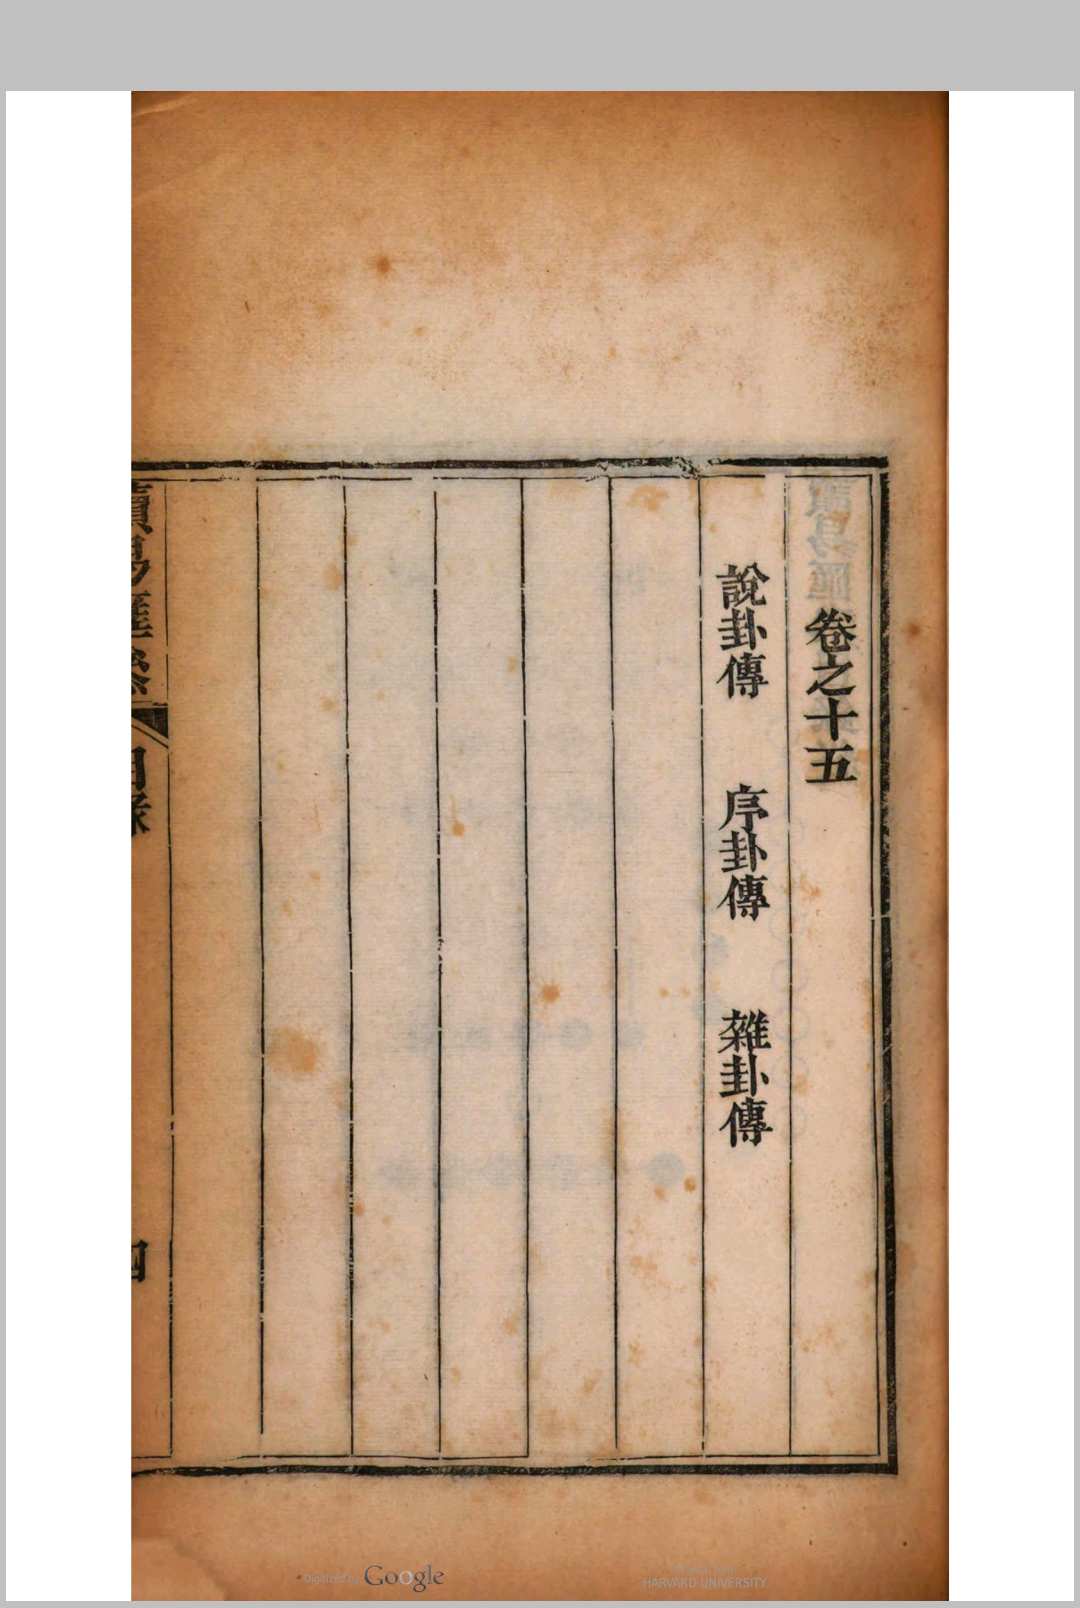 卷之十五
說卦傳 序卦傳 雜卦傳
目錄
四
Digitized by Google
HARVARD UNIVERSITY